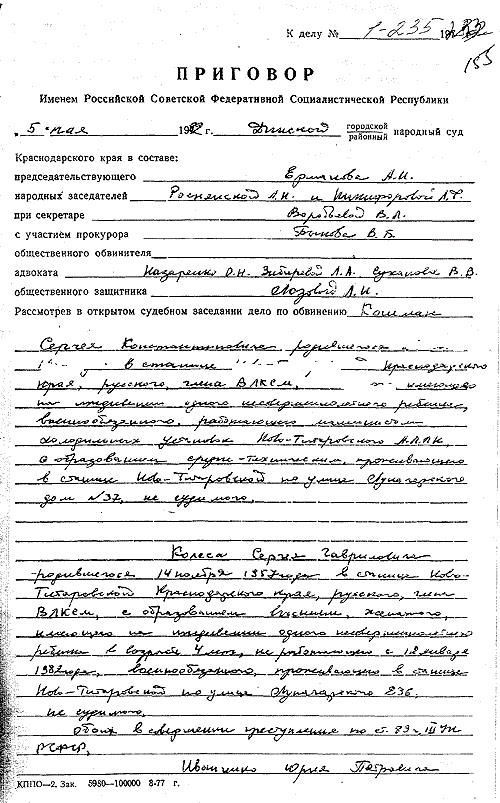 К делу № 1-235 1982
155
ПРИГОВОР
Именем Российской Советской Федеративной Социалистической Республики
„5 мая 1982 г. Динской городской районный народный суд
Краснодарского края в составе:
председательствующего Ермакова А.И.
народных заседателей и Никифоровой Л.Ф.
при секретаре Воробьевой В.Л.
с участием прокурора Быкова В.Б.
общественного обвинителя
адвоката Назаренко О.Н. Л.А. Суханова В.В.
общественного защитника Лозовой Л.И.
Рассмотрев в открытом судебном заседании дело по обвинению Кошман
Сергея Константиновича родившегося
в станице Краснодарского
края, русского, члена ВЛКСМ, имеющего
на иждивении одного несовершеннолетнего ребенка,
военнообязанного, работающего машинистом
холодильных установок Ново-Титаровского
с образованием средне-техническим, проживающего
в станице Ново-Титаровской по улице Луначарского
дом №37, не судимого,
Колеса Сергея Гавриловича
родившегося 14 ноября 1957 года в станице Ново-
Титаровской Краснодарского края, русского, член
ВЛКСМ, с образованием высшим, женатого,
имеющего на иждивении одного несовершеннолетнего
ребенка в возрасте 4 мес, не работающего с 18 января
1982 года, военнообязанного, проживающего в станице
Ново-Титаровской по улице Луначарского 236,
не судимого,
обоих в совершении преступления по ст. 89 ч. III УК
РСФСР,
Иванченко Юрия Петровича
КППО—2. Зак. 5980—100000 8-77 г.